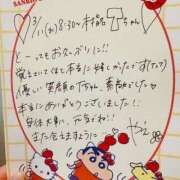 SANRIO
3/11(火) 8:30~ 本指名 Tちゃん
とーってもお久ぶりに!!
覚えていてくれて本当に嬉しかったです(TT)
優しい笑顔のTちゃん、素敵でした♡
本当にありがとうございました!!
身体大事に、元気でね!!
また会えますように…